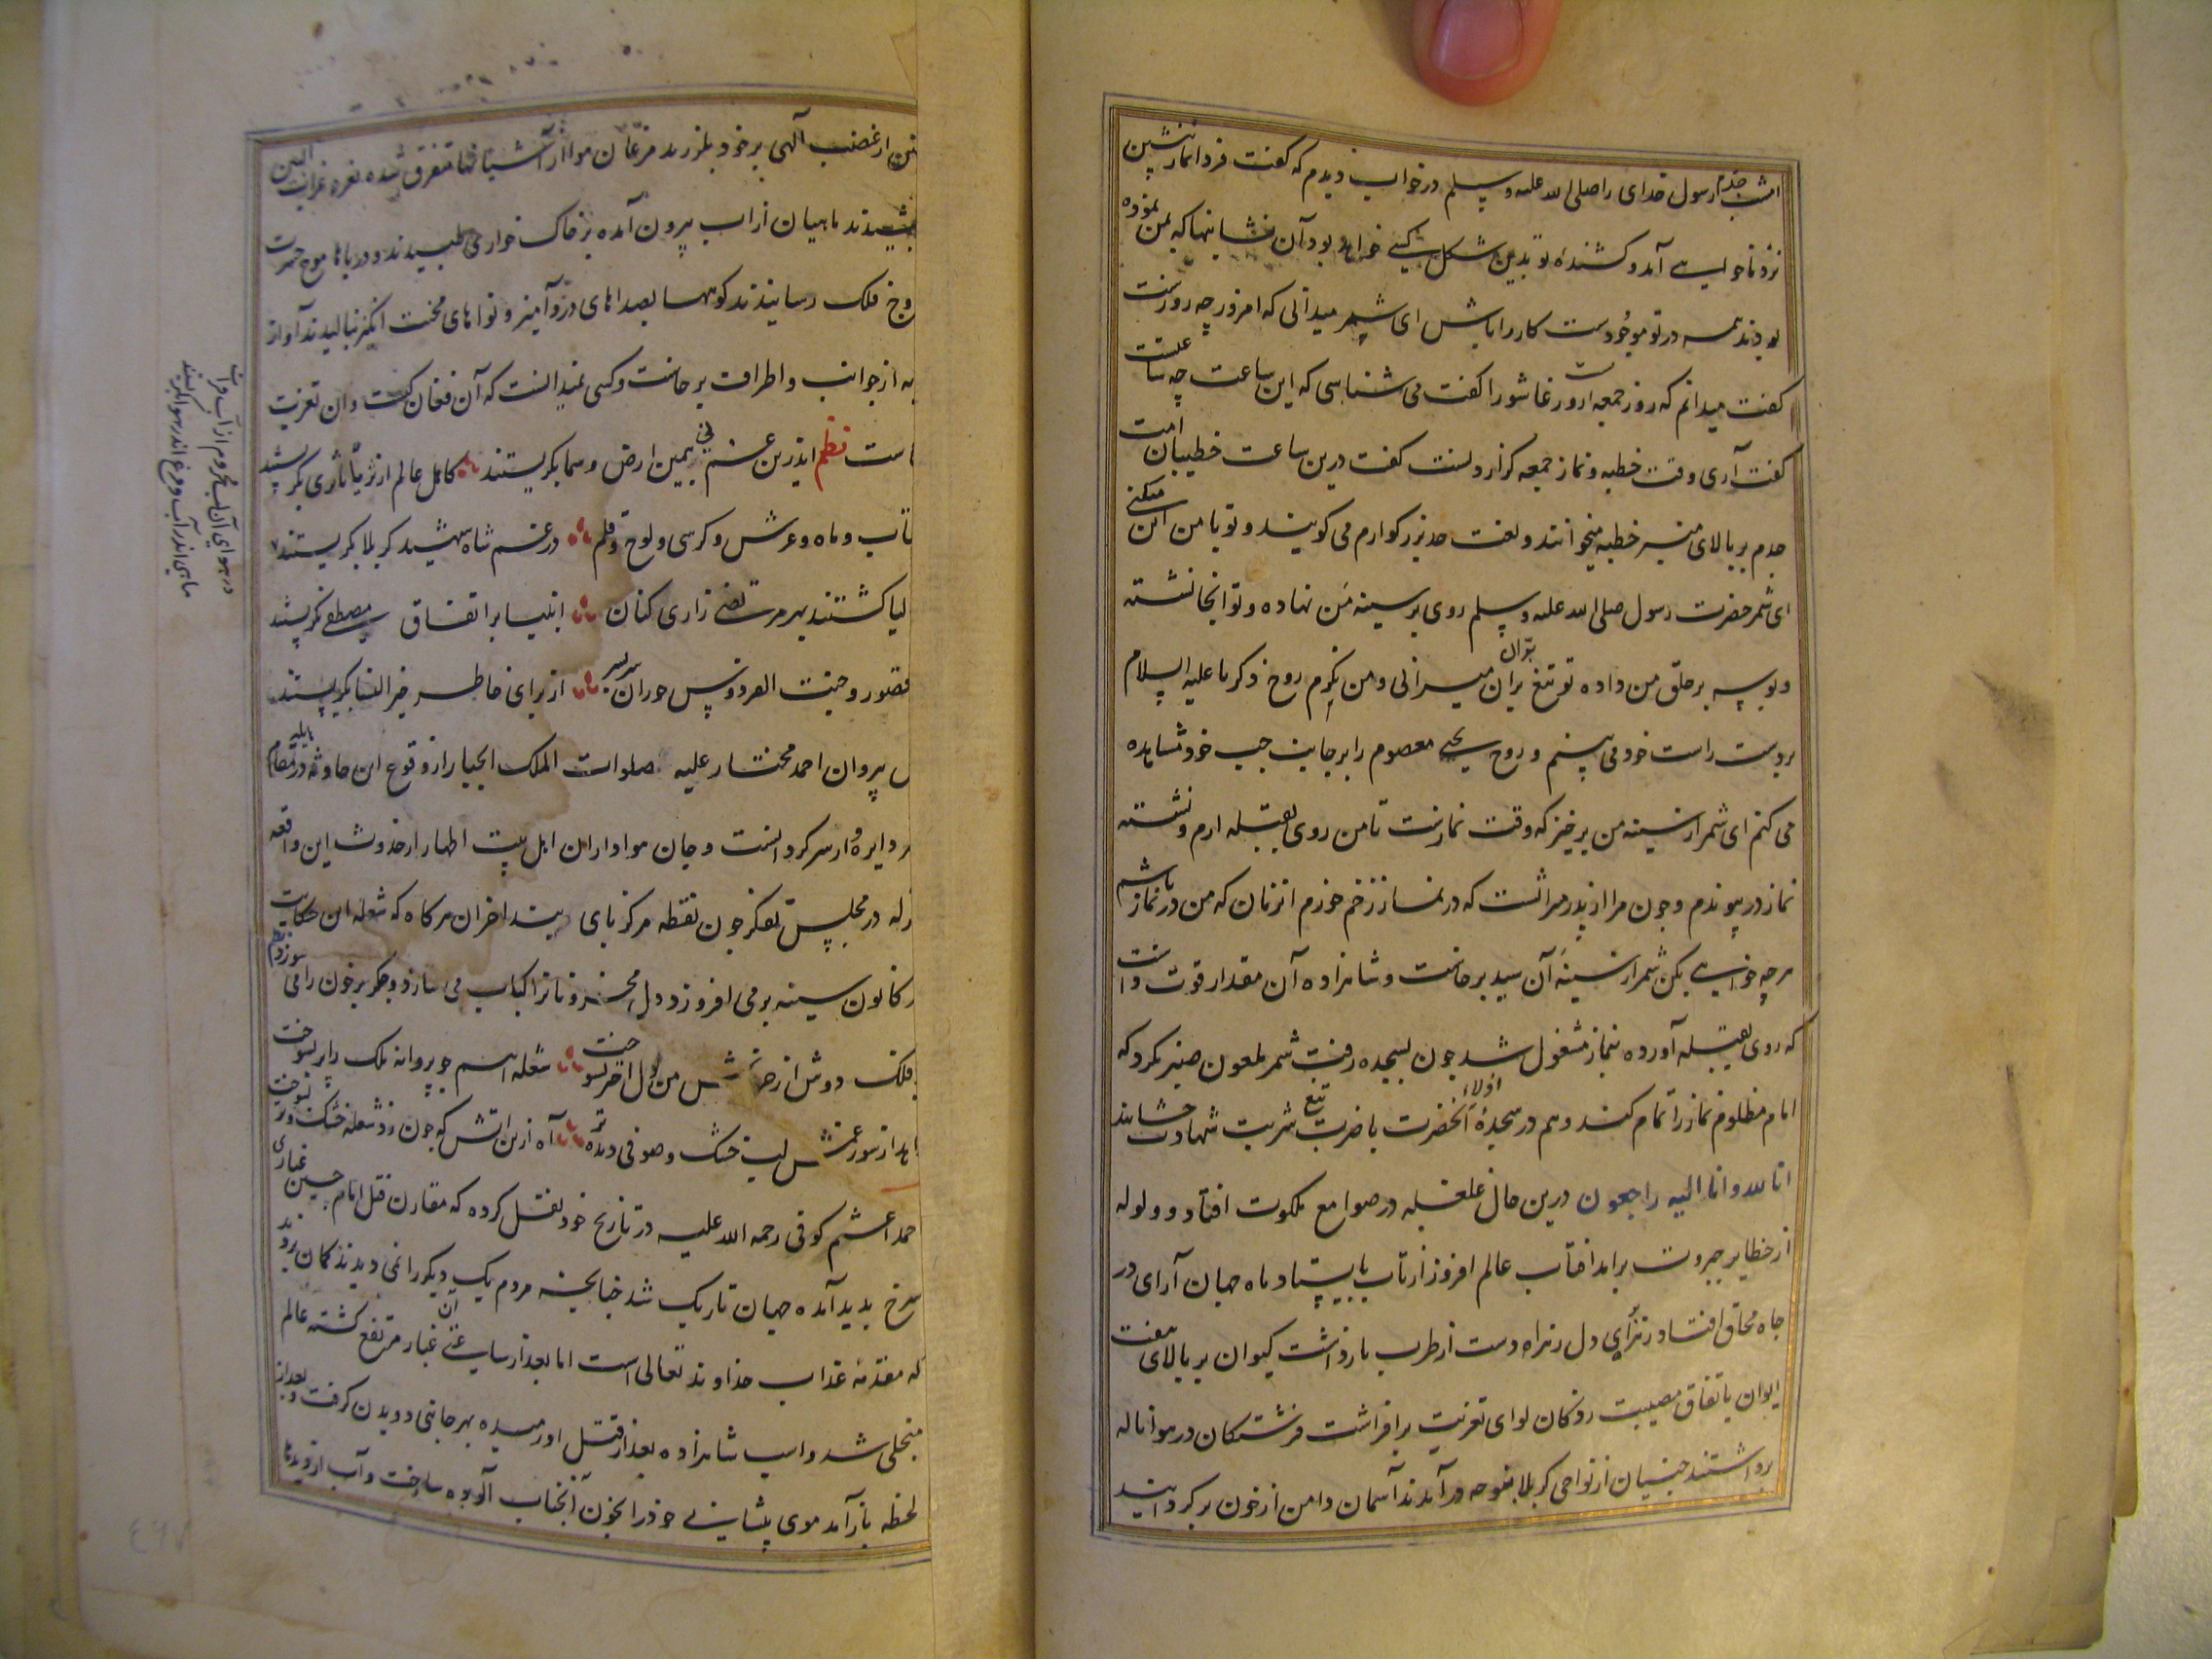 امشب جدم رسول خدای را صلی الله علیه وسلم در خواب دیدم که گفت فردا نماز پیشین
نزد ما خواهی آمد و کشنده تو بدین شکل کسی خواهد بود آن نشانیها که بمن نموده
بودند همه در تو موجودست کار را باش ای شمر میدانی که امروز چه روزست
گفت میدانم که روز جمعه و روز عاشورا گفت می شناسی که این ساعت چه ساعتست
گفت آری وقت خطبه و نماز جمعه گزاردنست گفت درین ساعت خطیبان امت
جدم بر بالای منبر خطبه میخوانند و نعت جد بزرگوارم می گویند و تو با من این میکنی
ای شمر حضرت رسول صلی الله علیه وسلم روی بر سینه من نهاده و تو آنجا نشسته
و بوسه بر حلق من داده تو تیغ بران میرانی و من نگرم روح زکریا علیه السلام
بر دست راست خود می بینم و روح یحیی معصوم را بر جانب چپ خود مشاهده
می کنم ای شمر از سینه من برخیز که وقت نمازست تا من روی بقبله ارم و نشسته
نماز در پیوندم و چون مرا از پدر میراثست که در نماز زخم خورم انزمان که من در نماز باشم
هر چه خواهی بکن شمر از سینه آن سید برخاست و شاهزاده آن مقدار قوت داشت
که روی بقبله آورده بنماز مشغول شد چون بسجده رفت شمر ملعون صبر نکرد که
امام مظلوم نماز را تمام کند و هم در سجده اولاء انحضرت با ضربت تیغ شربت شهادت چشانید
انا لله وانا الیه راجعون درین حال غلغله در صوامع ملکوت افتاد و ولوله
از حظایر جبروت برامد افتاب عالم افروز از تاب بایستاد ماه جهان آرای در
چاه محاق افتاد زهرای دل زهراه دست از طرب بازداشت کیوان بر بالای هفت
ایوان باتفاق مصیبت زدگان لوای تعزیت برافراشت فرشتکان در هوا ناله
برداشتند جنیان از نواحی کربلا بنوحه درآمدند آسمان دامن از خون پر کرد
از غضب آلهی بر خود بلرزید مرغان هوا از آشیانها متفرق شده نعره غراب البین
برکشیدند ماهیان از اب بیرون آمده بر خاک خواری طپیدند و دریاها موج حسرت
وج فلک رسانیدند کوهها بصداهای دردآمیز و نواهای محنت انگیز بنالیدند آواز
به از جوانب و اطراف برخاست و کسی نمیدانست که آن فغان کیست و ان تعزیت
است نظم اندرین غم نی همین ارض و سما بکریستند کاهل عالم از ثریا تا ثری بکریستند
تاب و ماه و عرش و کرسی و لوح و قلم در غم شاه شهید کربلا بکریستند
لیا کشتند بهر مرتضی زاری کنان انبیا بر اتفاق مصطفی بکریستند
قصور و جنت الفردوس حوران سربسر از برای خاطر خیر النسا بکریستند
پیروان احمد مختار علیه صلوات الملک الجبار از وقوع این حادثه هایله در مقام
دایره از سر کردانست و جان هواداران اهل بیت اطهار از حدوث این واقعه
زله در مجلس تفکر چون نقطه مرکز پای بر کاه که شعله این حکایت
ر کانون سینه برمی افروزد دل محزونانرا کباب می سازد و جکر پر خون را می سوزد نظم
فلک دوش از جرش من دل اختر بسوخت شعله اهم چو پروانه ملک را پر بسوخت
اهد از سوز غمش لب خشک و صوفی دیده تر آه ازین اتش که چون زد شعله خشک و تر بسوخت
حمد اعثم کوفی رحمه الله علیه در تاریخ خود نقل کرده که مقارن قتل امام حسین غباری
سرخ پدید آمده جهان تاریک شد چنانچه مردم یک دیکر را نمی دیدند کمان بردند
که مقدمه عذاب خداوند تعالی است اما بعد از ساعتی ان غبار مرتفع کشته عالم
منجلی شد و اسب شاهزاده بعد از قتل او رمیده بهر جانبی دویدن کرفت و بعد از
لحظه باز آمد موی پیشانی خود را بخون آنجناب آلوده ساخت و آب از دیدها
در هوای آن لب محروم از آب فرات
ماهی اندر آب و مرغ اندر هوا بکریستند